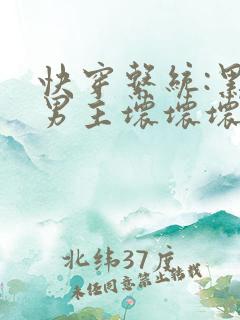 快穿系统:黑
男主坏坏坏
北纬37度
未经同意禁止转载